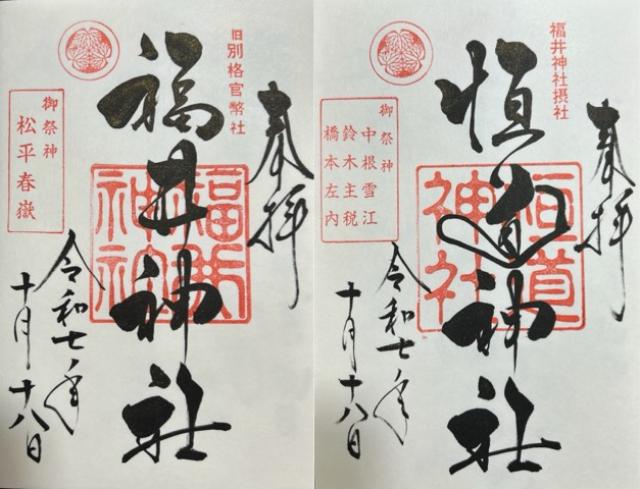 奉拝
旧別格官幣社
福井神社
福井神社
御祭神
松平春嶽
令和七年
十月十八日
奉拝
福井神社摂社
恒道神社
恒道神社
御祭神
中根雪江
鈴木主税
橋本左内
令和七年
十月十八日